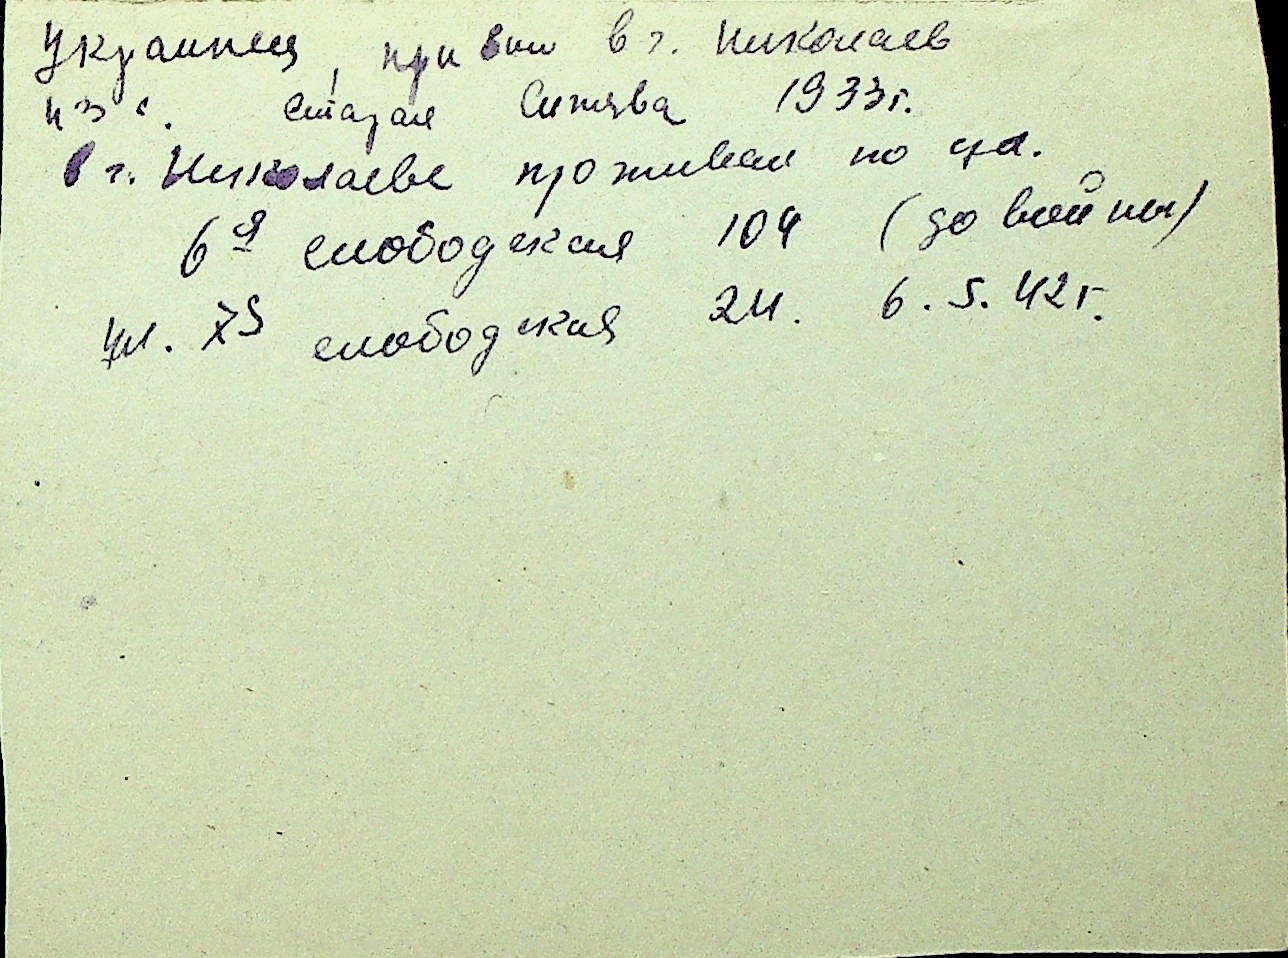 Украинец, прибыл в г. Николаев
из с. Старая Синява 1933 г.
в г. Николаеве проживал по ул.
6я слободская 104 (до войны)
ул. 7я слободская 24. 6.5.42 г.